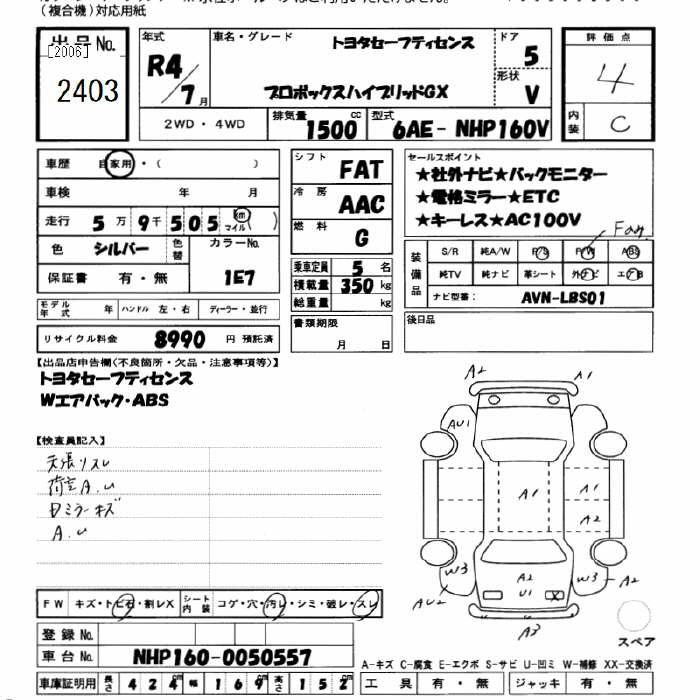 (複合機)対応用紙
出品No.
[2006]
2403
年式
R4/7月
車名・グレード
トヨタセーフティセンス
プロボックスハイブリッドGX
ドア
5
形状
V
評価点
4
内装
C
2WD・4WD
排気量
1500 cc
型式
6AE-NHP160V
車歴 自家用・( )
車検 年 月
走行 5万9千505 km マイル( )
色 シルバー 色替 カラーNo.
1E7
保証書 有・無
モデル年式 年 ハンドル 左・右 ディーラー・並行
リサイクル料金 8990 円 預託済
シフト FAT
冷房 AAC
燃料 G
乗車定員 5 名
積載量 350 kg
総重量 kg
書類期限
月 日
セールスポイント
★社外ナビ★バックモニター
★電格ミラー★ETC
★キーレス★AC100V
装備品
S/R 純A/W P/S P/W ABS
純TV 純ナビ 革シート 外ナビ エアB
ナビ型番: AVN-LBS01
後日品
【出品店申告欄(不良箇所・欠品・注意事項等)】
トヨタセーフティセンス
Wエアバック・ABS
【検査員記入】
天張リスレ
荷室A.U
Dミラーキズ
A.U
A2
A1
AU1
A1
A1
A2
W3
AU2
A2
U1
X
W3
A2
A3
スペア
FW キズ・トビ石・割レX シート内装 コゲ・穴・汚レ・シミ・破レ・スレ
登録No.
車台No. NHP160-0050557
車庫証明用 長さ 424 幅 169 高さ 152
A-キズ C-腐食 E-エクボ S-サビ U-凹ミ W-補修 XX-交換済
工具 有・無 ジャッキ 有・無